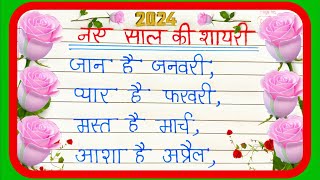 2024
नए साल की शायरी
जान है जनवरी,
प्यार है फरवरी,
मस्त है मार्च,
आशा है अप्रैल,